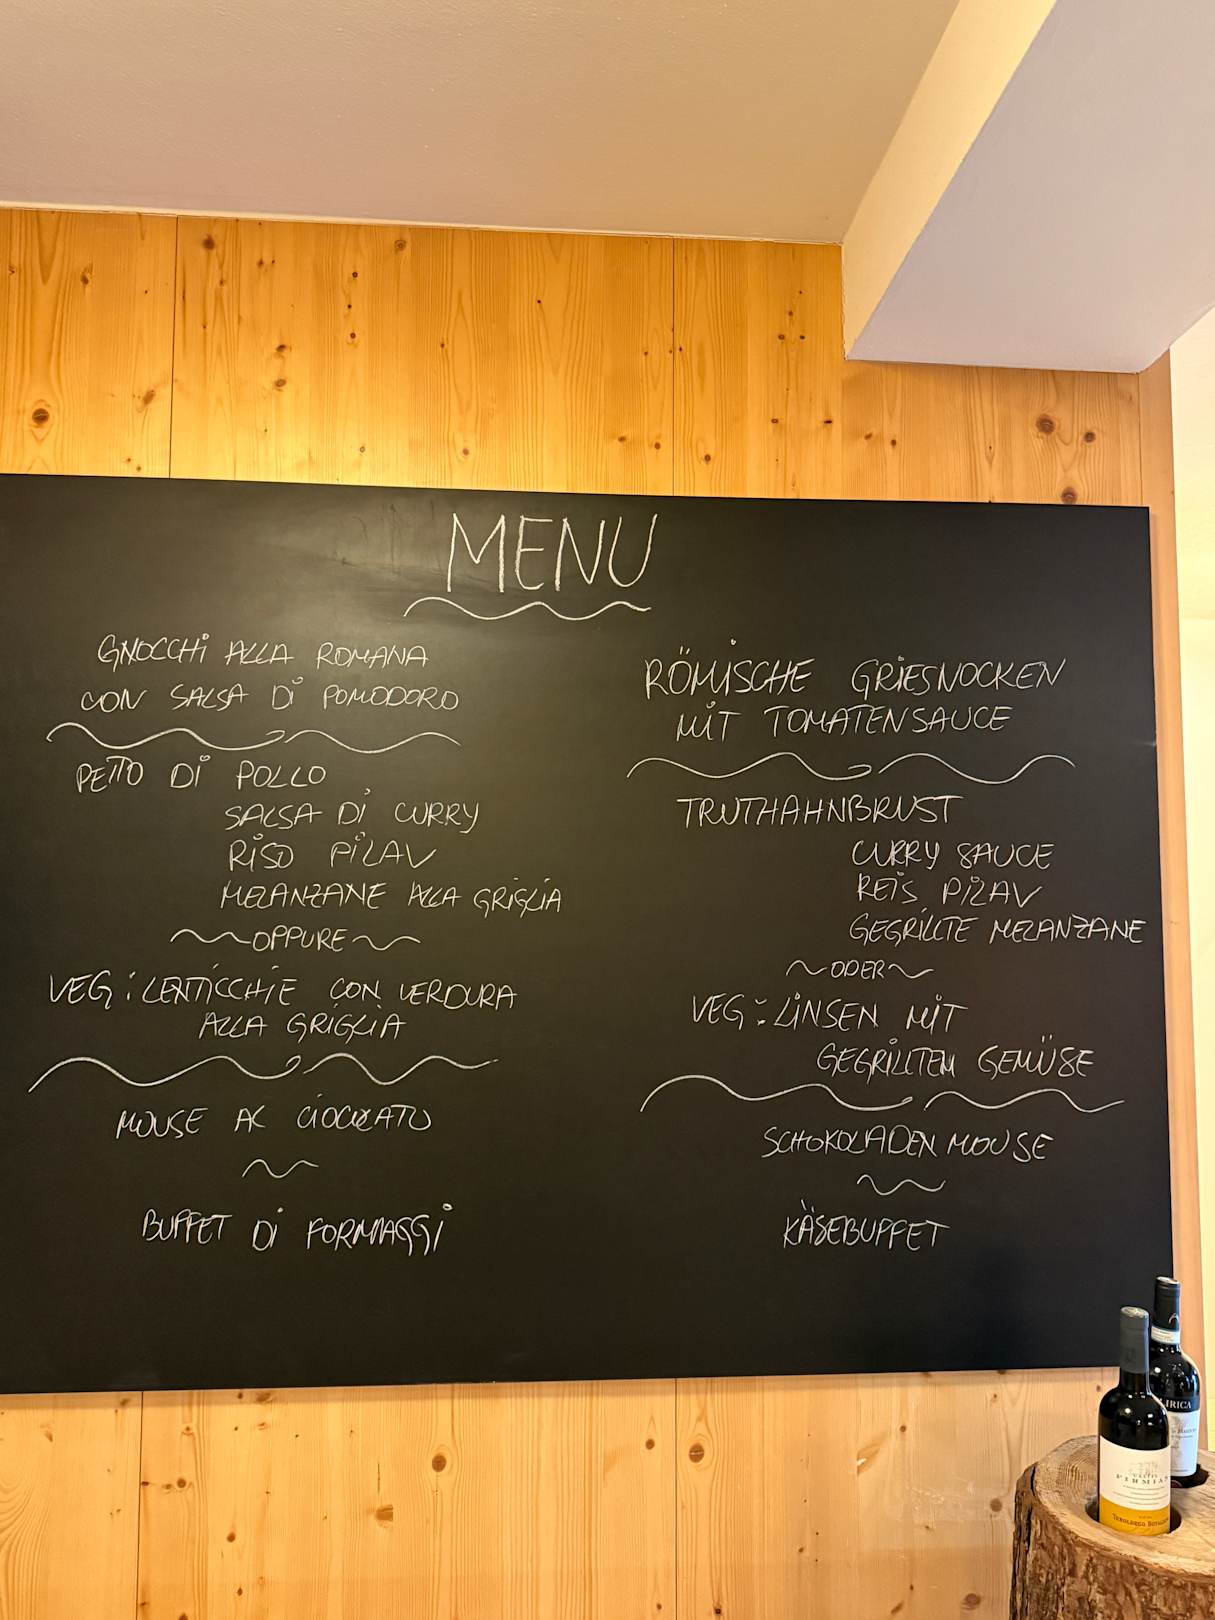 MENU
GNOCCHI ALLA ROMANA
CON SALSA DI POMODORO
PETTO DI POLLO
SALSA DI CURRY
RISO PILAV
MELANZANE ALLA GRIGLIA
OPPURE
VEG: LENTICCHIE CON VERDURA
ALLA GRIGLIA
MOUSE AL CIOCOLATO
BUFFET DI FORMAGGI
RÖMISCHE GRIESNOCKEN
MIT TOMATENSAUCE
TRUTHAHNBRUST
CURRY SAUCE
REIS PILAV
GEGRILLTE MELANZANE
ODER
VEG: LINSEN MIT
GEGRILLTEM GEMÜSE
SCHOKOLADEN MOUSE
KÄSEBUFFET
LIRICA
CASTEL
FIRMIAN
TEROLDEGO ROTALIANO